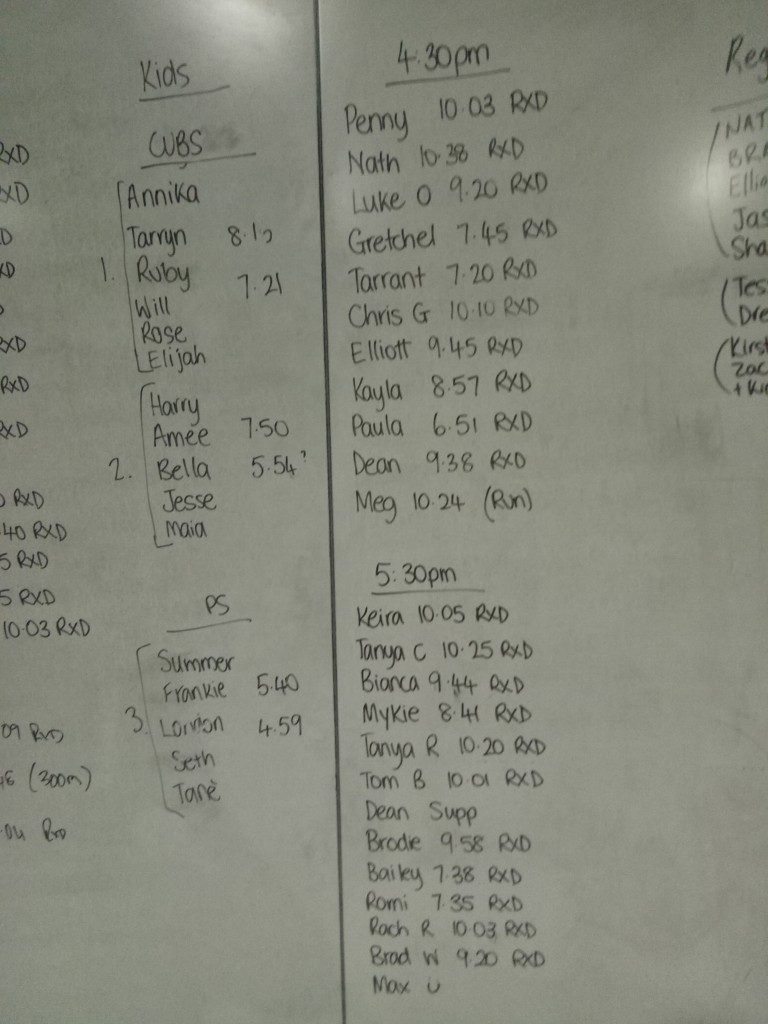 RXD
XD
D
XD
RXD
RXD
RXD
RXD
40 RXD
5 RXD
5 RXD
10.03 RXD
09 RXD
(300m)
04 RXD
Kids
CUBS
Annika
Tarryn
1. Ruby 7.21
Will
Rose
Elijah
Harry
Amee 7.50
2. Bella 5.54?
Jesse
Maia
PS
Summer
Frankie 5.40
3. 4.59
Seth
Tane
4:30pm
Penny 10.03 RXD
Nath 10.38 RXD
Luke O 9.20 RXD
Gretchel 7.45 RXD
Tarrant 7.20 RXD
Chris G 10.10 RXD
Elliott 9.45 RXD
Kayla 8.57 RXD
Paula 6.51 RXD
Dean 9.38 RXD
Meg 10.24 (Run)
5:30pm
Keira 10.05 RXD
Tanya C 10.25 RXD
Bianca 9.44 RXD
Mykie 8.41 RXD
Tanya R 10.20 RXD
Tom B 10.01 RXD
Dean Supp
Brodie 9.58 RXD
Bailey 7.38 RXD
Romi 7.35 RXD
Rach R 10.03 RXD
Brad W 9.20 RXD
Max
Reg
NAT
BRA
Ellio
Jas
Sha
Tes
Dre
Kirst
Zac
+ Ki